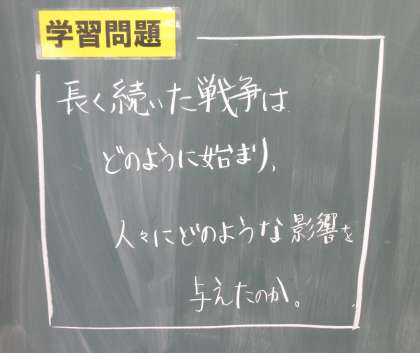 学習問題
長く続いた戦争は
どのように始まり、
人々にどのような影響を
与えたのか。